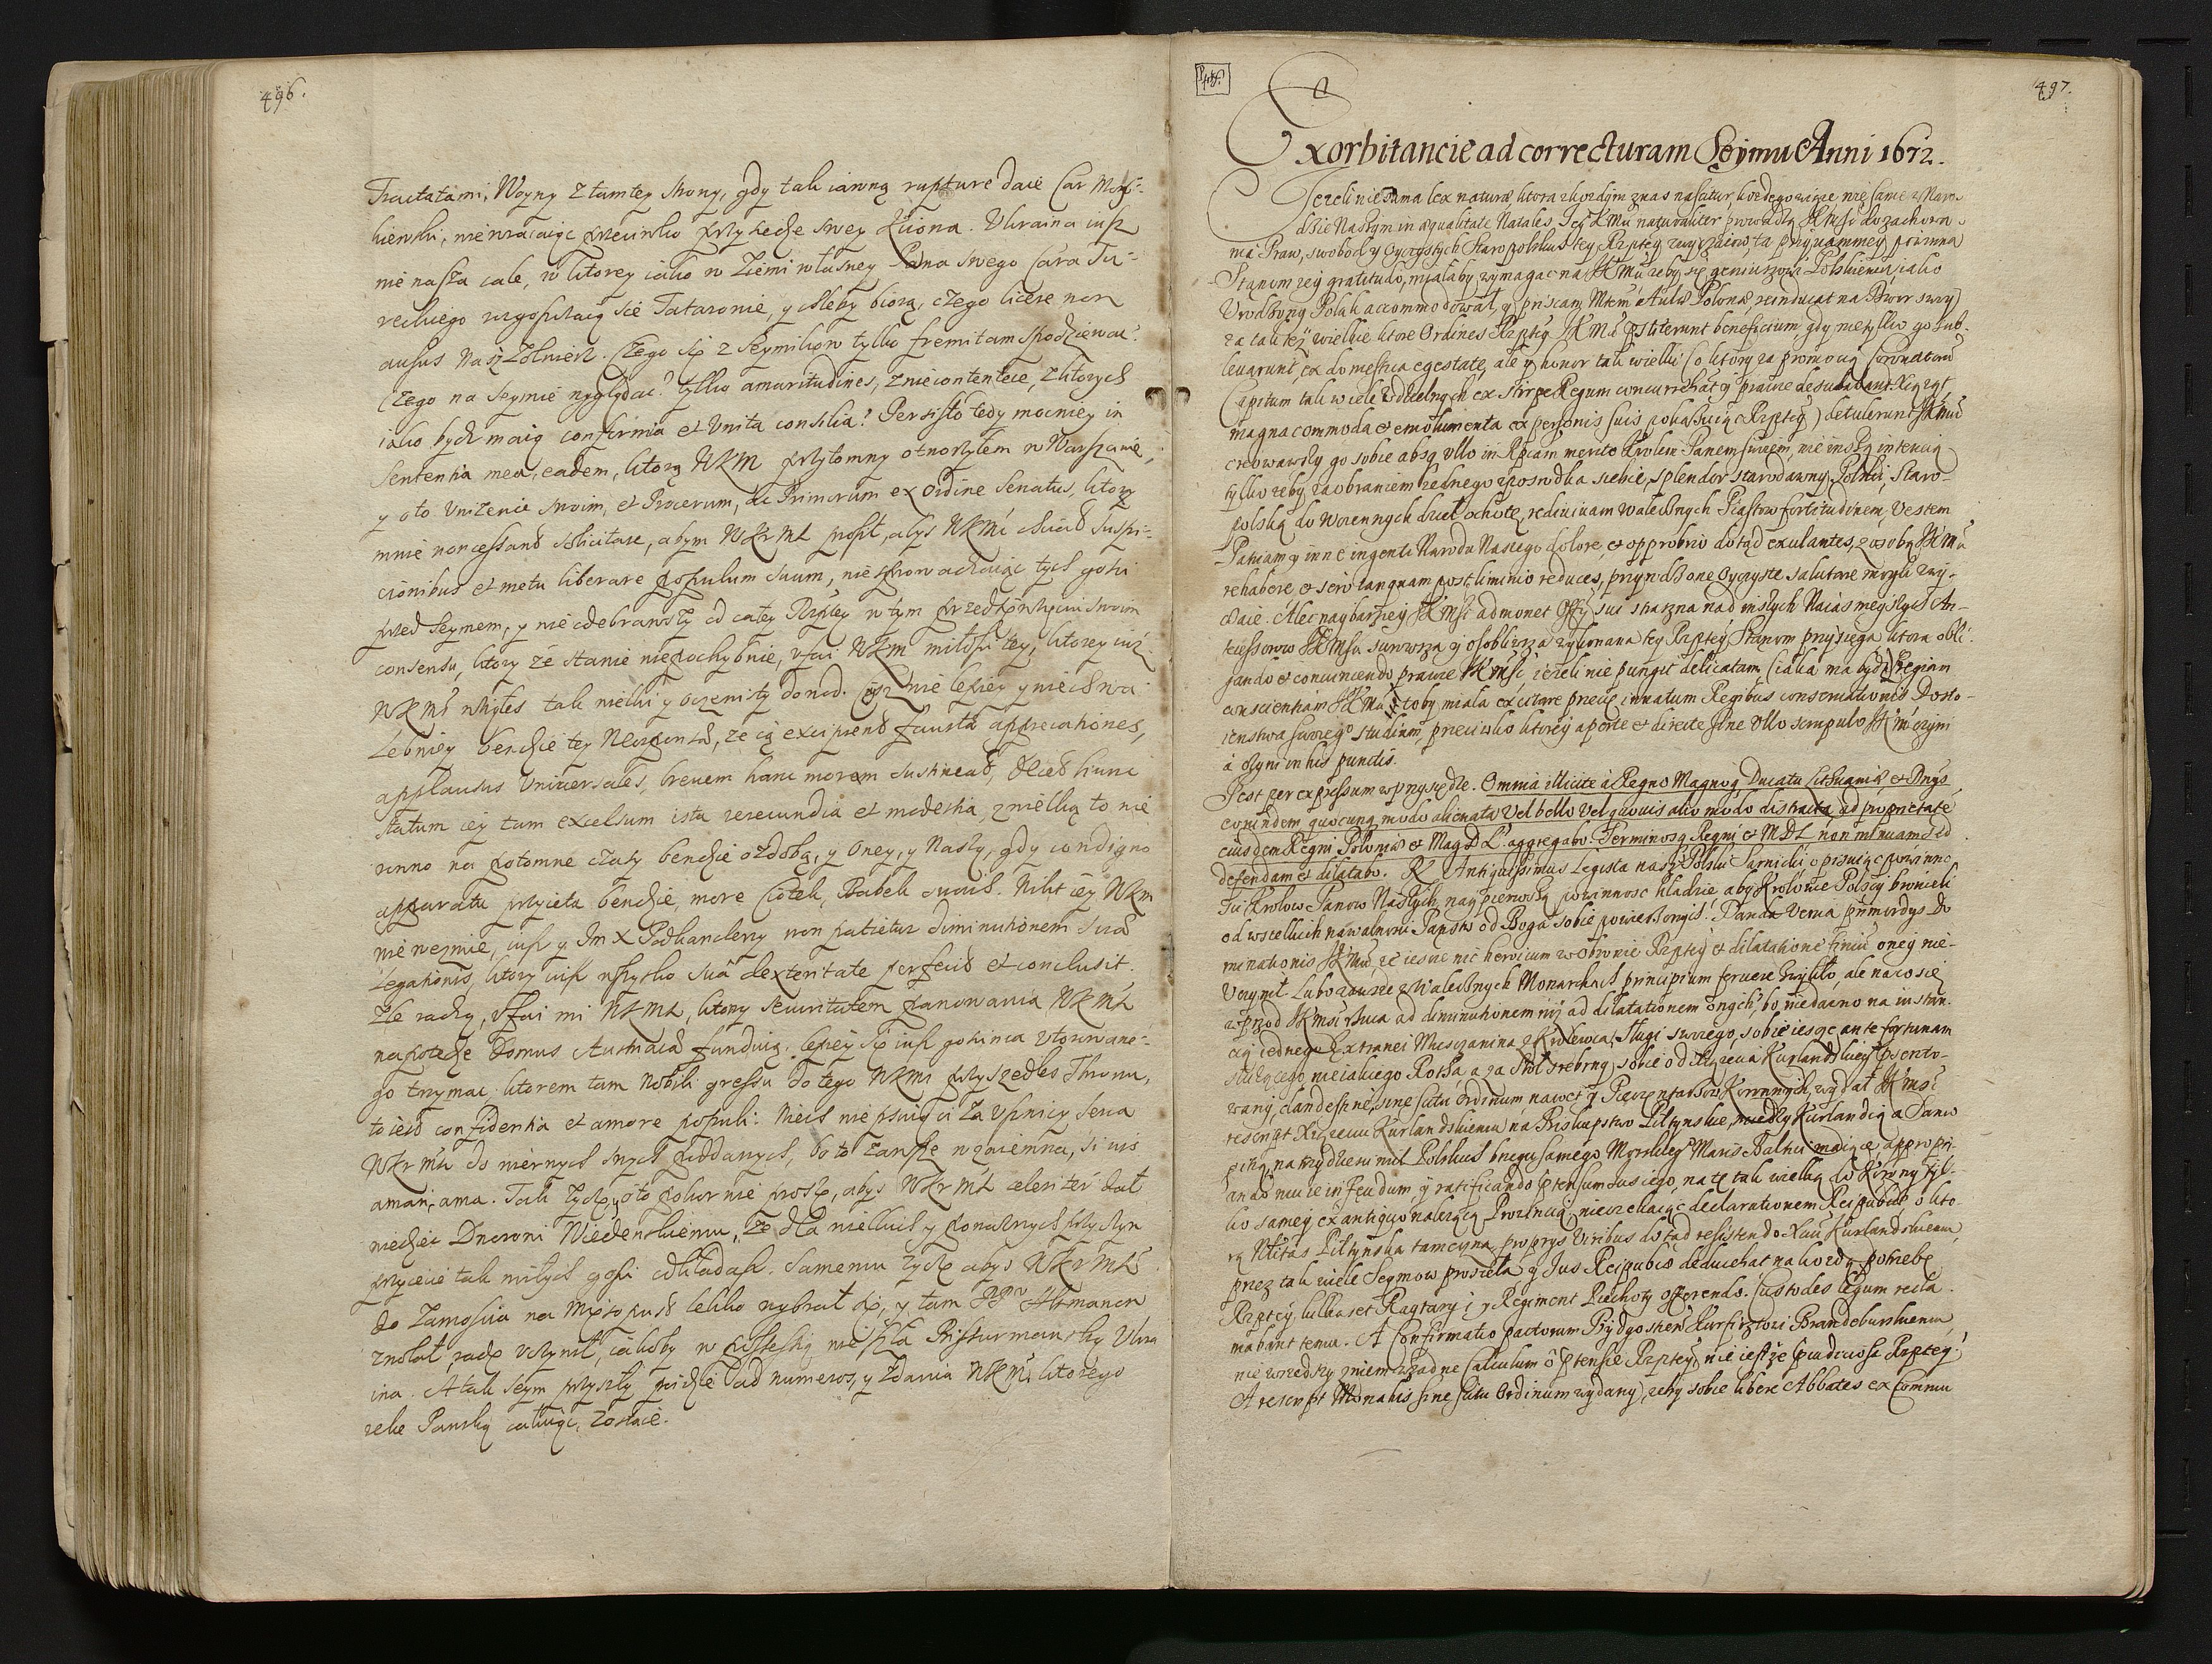 496.
Tractatami, Woyny z tamtey strony, gdy tak iawną rupturę daie Car Mosk-
kiewski, nie wracaiąc przeciwko przysiedze swey Kiiowa. Ukraina iusz
nie nasza cale, w ktorey iako w Ziemi własney Pana swego Cara Tu-
reckiego rozposciaraią sie Tatarowie, y chleby biorą, czego licere non
ausus Nasz Zołnierz. Czego się z Seymikow tylko fremitam spodziewac?
Czego na Seymie wyglądac? tylko amaritudines, znie contentece, z ktorych
iako bydz maią confirmia et Unita consilia? Persisto tedy mocniey in
Sententia mea, eadem, ktorą WKM przytomny otworzyłem w Warszawie,
y oto Unizenie swoim, et Procerum, ac Primorum ex Ordine Senatus, ktorzy
mnie non cessant solicitare, abym WKrMć prosił, abys WKMć chciał suspi-
cionibus et metu liberare populum suum, nie sprowadzaiąc tych gosci
przed Seymem, y nie odebrawszy od całey Rzpltey w tym przedsięwzięciu swoim
consensu, ktory ze stanie niepochybnie, ufai WKM miłosci tey, ktorey iuż
WKMć wziąłes tak wielki y oczewisty dowod. Czyz nie lepiey y nie chwa-
lebniey bendzie tey Neosponsæ, ze ią excipient fausta apprecationes,
applausus Universales, brevem hanc moram sustineat, decet hunc
statum iey tam excelsum ista verecundia et modestia, z wielką to nie
rowno na potomne czasy bendzie ozdobą, y Oney, y Naszą, gdy condigno
apparatu przyięta bendzie, more Ciotek, Babek suoich. Nikt iey WKM
nie wezmie, iusz y Jm X Podkanclerzy non patietur diminutionem suæ
Legationis, ktory iusz wszytko suâ dexteritate perfecit et conclusit.
Zle radzą, Ufai mi WKMć, ktorzy securitatem panowania WKMć
na potędze Domus Austriacæ funduią. lepiey się iusz goscinca utorowane-
go trzymac, ktorem tam Nobili gressu do tego WKMć przyszedłes Thronu,
to iest confidentia et amore populi: Niech nie psuią ci za Uscnicy serca
WKrMć do wiernych swych poddanych, bo to zawsze wzaiemna, si vis
amari, ama. Tak życzę, o to pokornie proszę, abys WKrMć celeriter dał
wiedziec Dworowi Wiedenskiemu, że dla wielkich y powaznych przyczyn
przyięcie tak miłych gosci odkładasz. Samemu życzę abys WKrMć
do Zamoscia na Mięsopust lekko wybrał się, y tam PPw Hetmanow
zwołał radę uczynił, iakoby w possessią nie szła Bissurmanską Ukra
ina. A tak Seym przyszły poidzie ad numeros, y zdania WKMć, ktorego
ręke Panską całuiąc, zostaie.
497.
Exorbitancie ad correcturam Seymu Anni 1672.
Iezeli nie sama lex naturæ, ktora z kozdym z nas nascitur, kozdego wiąże nie same w Naro-
dzie Naszym in æqualitate Natales, Iego KMci naturaliter prowadzą JKMsc do zachowa-
nia Praw, swobod y Oyczystych Staropolskich tey Rzptey zwyczaiow, ta przynammiey powinna
Stanom iey gratitudo, miałaby wymagac na JKMci zeby się geniuszowi Polskiemu, iako
Urodzony Polak accommodował, y priscam Mtem Aulæ Polonæ reinducat na Dwor swoy
za tak tey wielkie ktore Ordines Rzptey JKMci pstiterunt beneficium, gdy nie tylko go sub-
levarunt, ex domestica egestate, ale y honor tak wielki (o ktory za promocią Coronatorum
Capitum tak wiele Udzielnych ex stirpe Regum concurrebat y prawie desudabant Xcząząt
magna commoda et emolumenta ex personis suis pokazuiąc Rzptey) detulerunt JKMci
creowawszy go sobie absq ullo in Rpcam merito Krolem Panem swoiem, nie inszą intencią
tylko zeby za obraniem iednego z posrodka siebie, splendor starodawny Polski, Staro-
polską do Woiennych dzieł ochotę, redivivam walecznych Piastow fortitudinem, Vestem
Patriam y inne ingenti Narodu Naszego dolore, et opprobrio dotąd exulantes, z osobą JKMci
rehabere, et sero tanquam postliminio reduces, przywrocone Oyczyste salutare mogli zwy-
czaie. Alec naybarziey JKMsc admonet Officy sui straszna nad inszych Naiasnieyszych An-
tecessorow JKMsci surowsza y osobliwsza wykonana tey Rzptey Stanom przysięga ktora obli-
gando et convincendo prawie JKMsci iezeli nie pungit delicatam (iaka ma bydz) Regiam
conscientiam JKMci, toby miała excitare przecię innatum Regibus conservationis Dosto-
ienstwa swoiego studium, przeciwko ktorey aperte et directe sine ullo scrupulo JKMć czyni
a czyni in his punctis.
Iest per expressum w przysiędze. Omnia illicite à Regno Magnoq Ducatu Lithuaniæ, et Dnys
eorundem quocunq modo alienata Vel bello Vel quovis alio modo distracta, ad proprietate
eiusdem Regni Poloniæ et Mag D L. aggregabo. Terminosq Regni et MDL non minuam sed
defendam et dilatabo. R Antiquissimus Legista nasz Polski Sarnicki opisuiąc powinno
sci Krolow Panow Naszych, nay pierwszą powinnosc kładzie, aby Krolowie Polscy bronieli
od wszelkich nawalnosci Panstw od Boga sobie powierzonych. Danda Venia primordys Do
minationis JKMci ze ieszcze nic heroicum w Obronie Rzptey et dilatatione finiu oney nie
Uczynił Lubo zawsze w Walecznych Monarchach principium fervere zwykło, ale naco się
wprzod JKMsci rzuca ad diminutionem niz ad dilatationem onych, bo niedawno na instan-
cią iednego Extranei Mieszczanina z Krolewca, sługi swoiego, sobie ieszcze ante fortunam
słuzącego, nieiakiego Rossa a za Stoł srebrny sobie od Xiązęcia Kurlandskiego psento-
wany, clandestine, sine scitu Ordinum, nawet y Pieczętarzow Koronnych, wydał JKMsc
rescript Xiązęciu Kurlandskiemu na Biskupstwo Piltynskie, miedzy Kurlandią a Samo
gitią, na trzydziesci mil Polskich brzegu samego Morskiego Maris Baltici maiące, appropri-
ando mu ie in Feudum, y ratificando ptensum Ius iego, na tę tak wielką do Korony tyl-
ko samey ex antiquo nalezącą Prowincią, nie czekaiąc declarationem Reipublicæ o kto-
rą Nlitas Piltynska tameczna, proprys Viribus dotąd resistendo Xciu Kurlandskiemu,
przez tak wiele Seymow prosieła y Ius Reipublicæ deducebat na kozdą potrzebę
Rzptey kilkaset Raytaryi y Regiment Piechoty offerendo. Custodes legum recla
mabant temu. A Confirmatio pactorum Bydgoskich Kurfirsztowi Brandeburskiemu,
nie wszedszy z niem w zadne Calculum o ptensie Rzptey, nie iestze praeiudiciosa Rzptey?
A rescript Monachis sine scitu Ordinum wydany, zeby sobie libere Abbates ex Commu